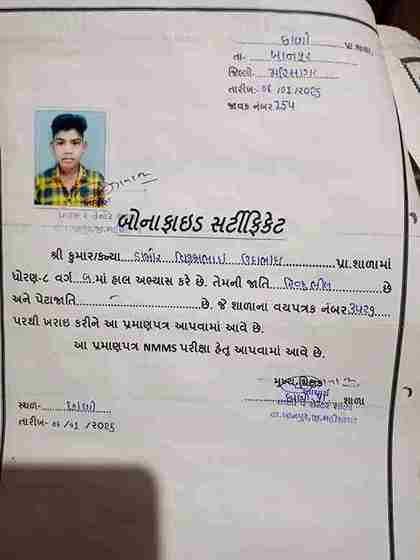 પ્રા.શાળા,
તા- ખાનપુર
જિલ્લો- મહિસાગર
તારીખ:- ૦૬/૦૧/૨૦૨૬
જાવક નંબર 254
બોનાફાઇડ સર્ટીફિકેટ
શ્રી કુમાર/કન્યા ડામોર પ્રા.શાળામાં
ધોરણ-૮ વર્ગ બ માં હાલ અભ્યાસ કરે છે. તેમની જાતિ હિન્દુ ભીલ છે
અને પેટાજાતિ - છે. જે શાળાના વયપત્રક નંબર
પરથી ખરાઇ કરીને આ પ્રમાણપત્ર આપવામાં આવે છે.
આ પ્રમાણપત્ર NMMS પરીક્ષા હેતુ આપવામાં આવે છે.
મુખ્ય શિક્ષક
શાળા
સ્થળ-
તારીખ- ૦૬/૦૧/૨૦૨૬